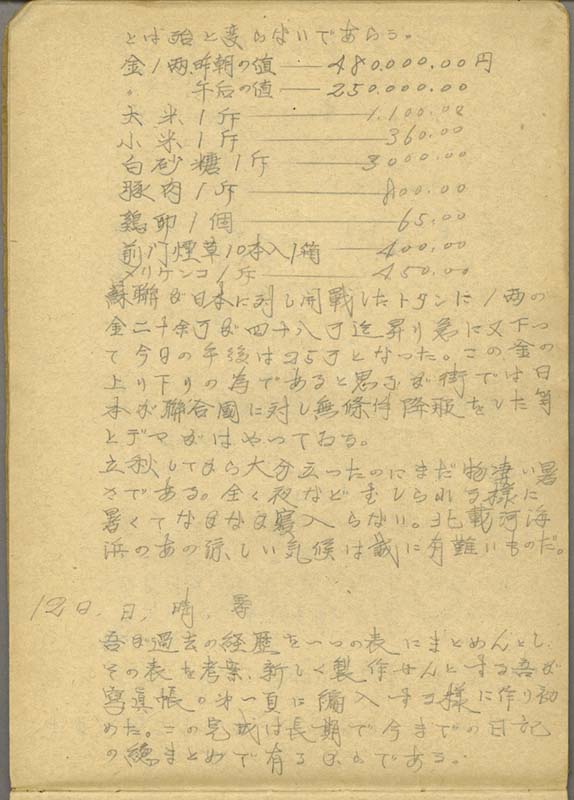 とは殆と変らないであらう。
金1両、昨朝の値――480.000.00円
〃 午后の値――250.000.00
大米1斤――1.100.00
小米1斤――360.00
白砂糖1斤――3000.00
豚肉1斤――800.00
鶏卵1個――65.00
前門煙草10本入1箱――400.00
メリケンコ1斤――450.00
蘇聯が日本に対し開戦したトタンに1両の
金二十余万が四十八万迄昇り急に又下っ
て今日の午後は25万となった。この金の
上り下りの為であると思ふが街では日
本が聯合國に対し無條件降服をした等
とデマがはやっておる。
立秋してから大分立ったのにまだ物凄い暑
さである。全く夜などむしられる様に
暑くてなかなか寝入らない。北戴河海
浜のあの涼しい気候は誠に有難いものだ。
12日、日、晴、暑
吾が過去の経歴を一つの表にまとめんとし
その表を考案、新しく製作せんとする吾が
寫眞帳の第一頁に編入する様に作り初
めた。この完成は長期で今までの日記
の総まとめで有るからである。